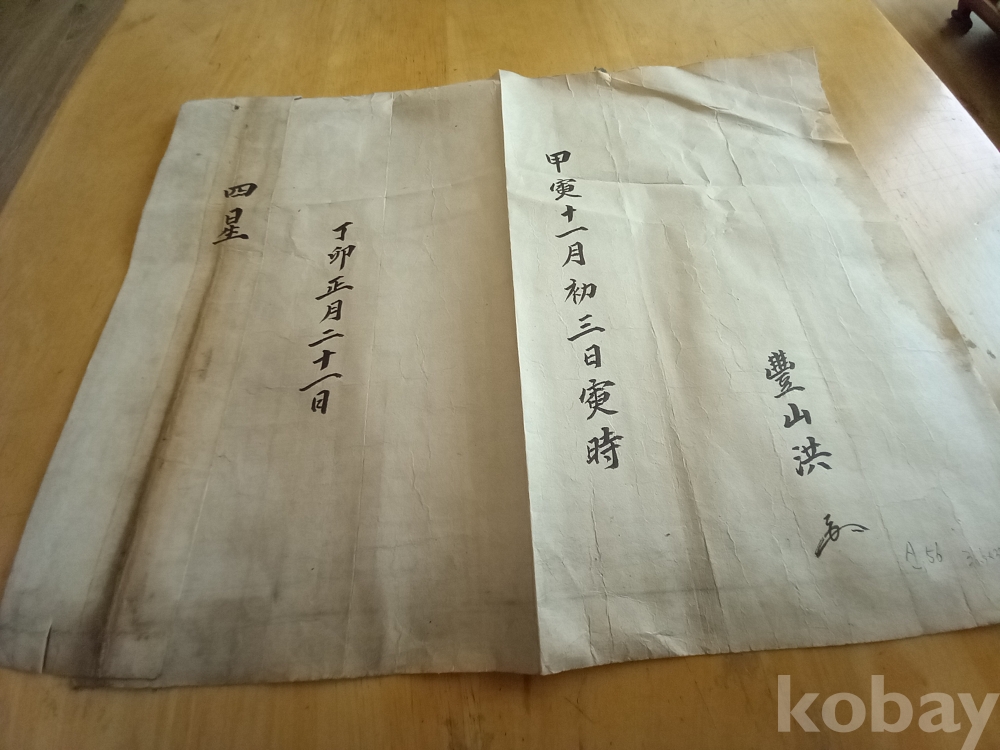 豐山洪
甲寅十一月初三日寅時
丁卯正月二十一日
四星
A 56
kobay